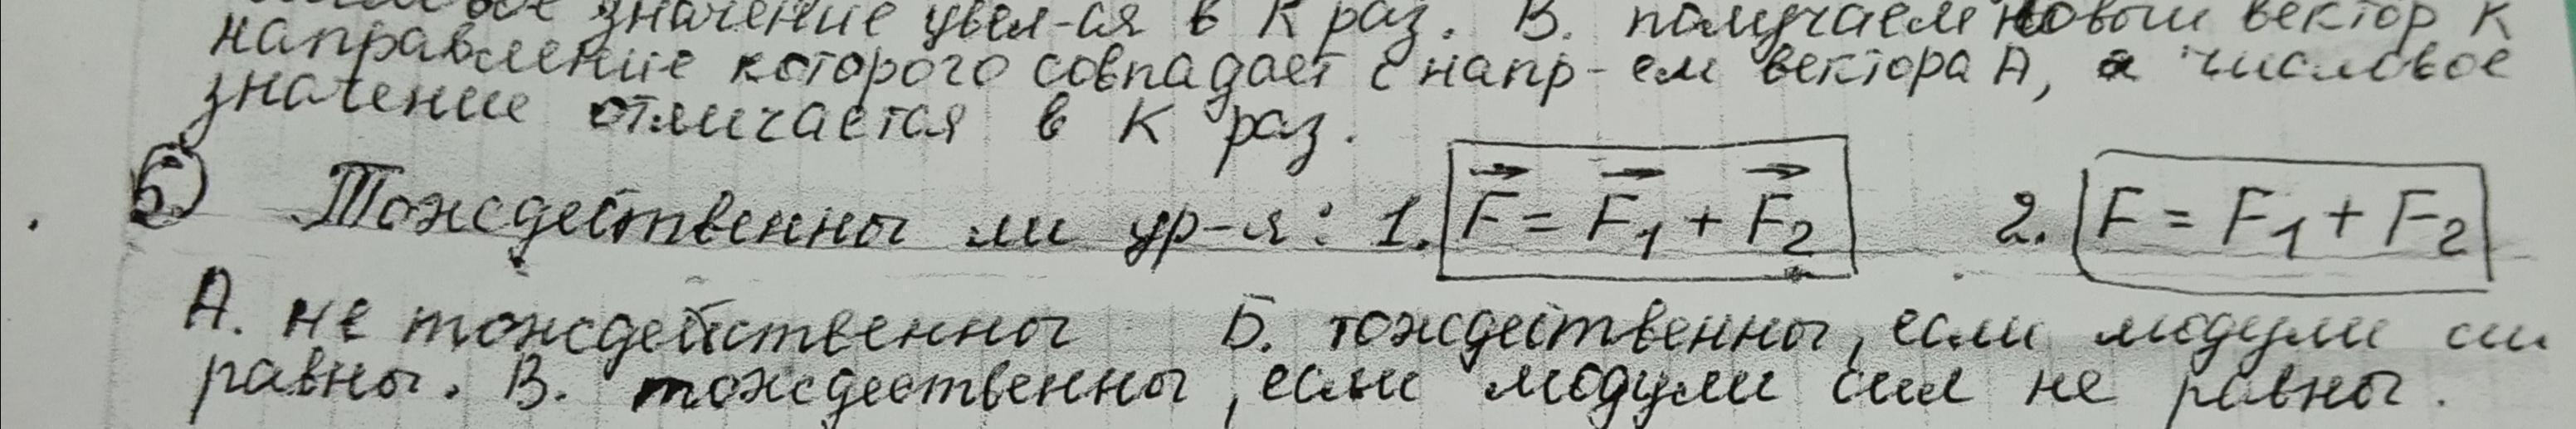 значение увел-ся в К раз. В. получаем новый вектор К
направление которого совпадает с напр-ем вектора А, а числовое
значение отличается в К раз.
5) Тождественны ли ур-я: 1. F⃗ = F⃗₁ + F⃗₂ 2. F = F₁ + F₂
А. не тождественны Б. тождественны, если модули
равны. В. тождественны, если модули сил не равны.